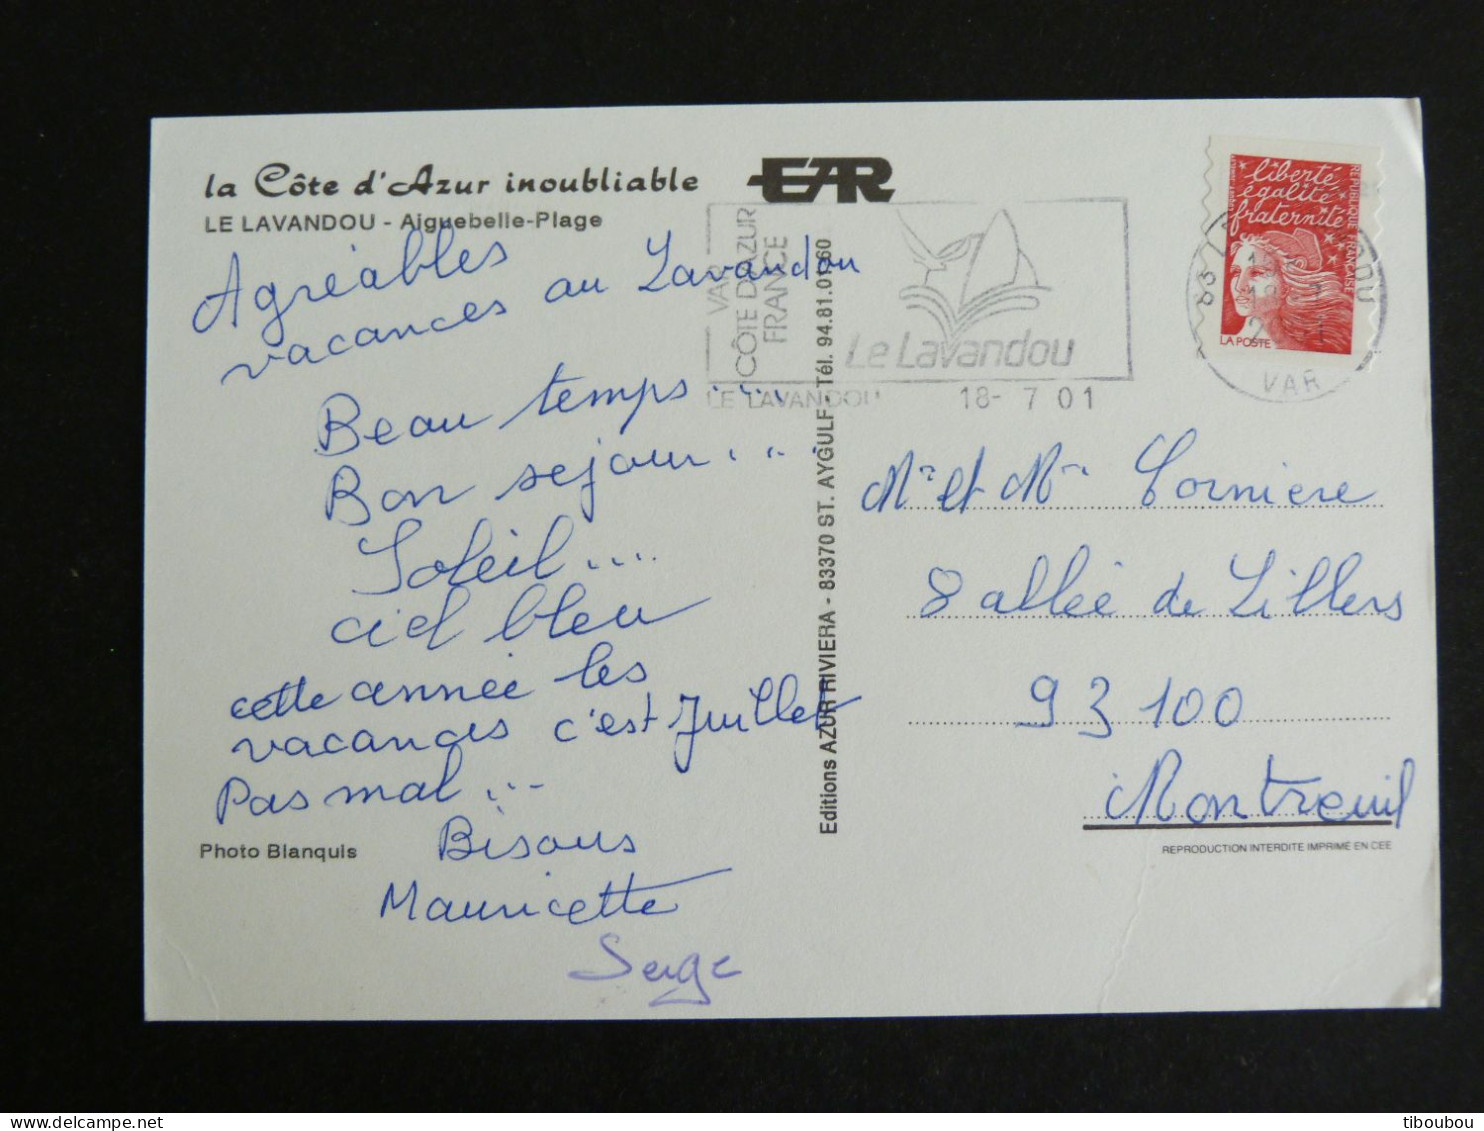 la Côte d'Azur inoubliable
EAR
LE LAVANDOU - Aiguebelle-Plage
Agréables
vacances au Lavandou
Beau temps....
Bon sejour....
Soleil....
ciel bleu
cette année les
vacances c'est Juillet
Pas mal...
Bisous
Mauricette
Serge
Photo Blanquis
Editions AZUR RIVIERA - 83370 ST. AYGULF - Tél. 94.81.01.60
VAR
CÔTE D'AZUR
FRANCE
Le Lavandou
LE LAVANDOU 18- 7 01
liberté
égalité
fraternité
REPUBLIQUE FRANCAISE
LA POSTE
83
VAR
Mr et Mme Corniere
8 allée de Lillers
93100
Montreuil
REPRODUCTION INTERDITE IMPRIMÉ EN CEE
tiboubou